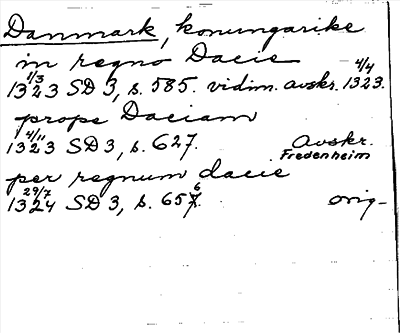 Danmark, konungarike
in regno Dacie
1323 1/3 SD 3, s. 585. vidim. avskr. 1323 4/4.
prope Daciam
1323 4/11 SD 3, s. 627. Avskr. Fredenheim
per regnum dacie
1324 29/7 SD 3, s. 657 6. orig-